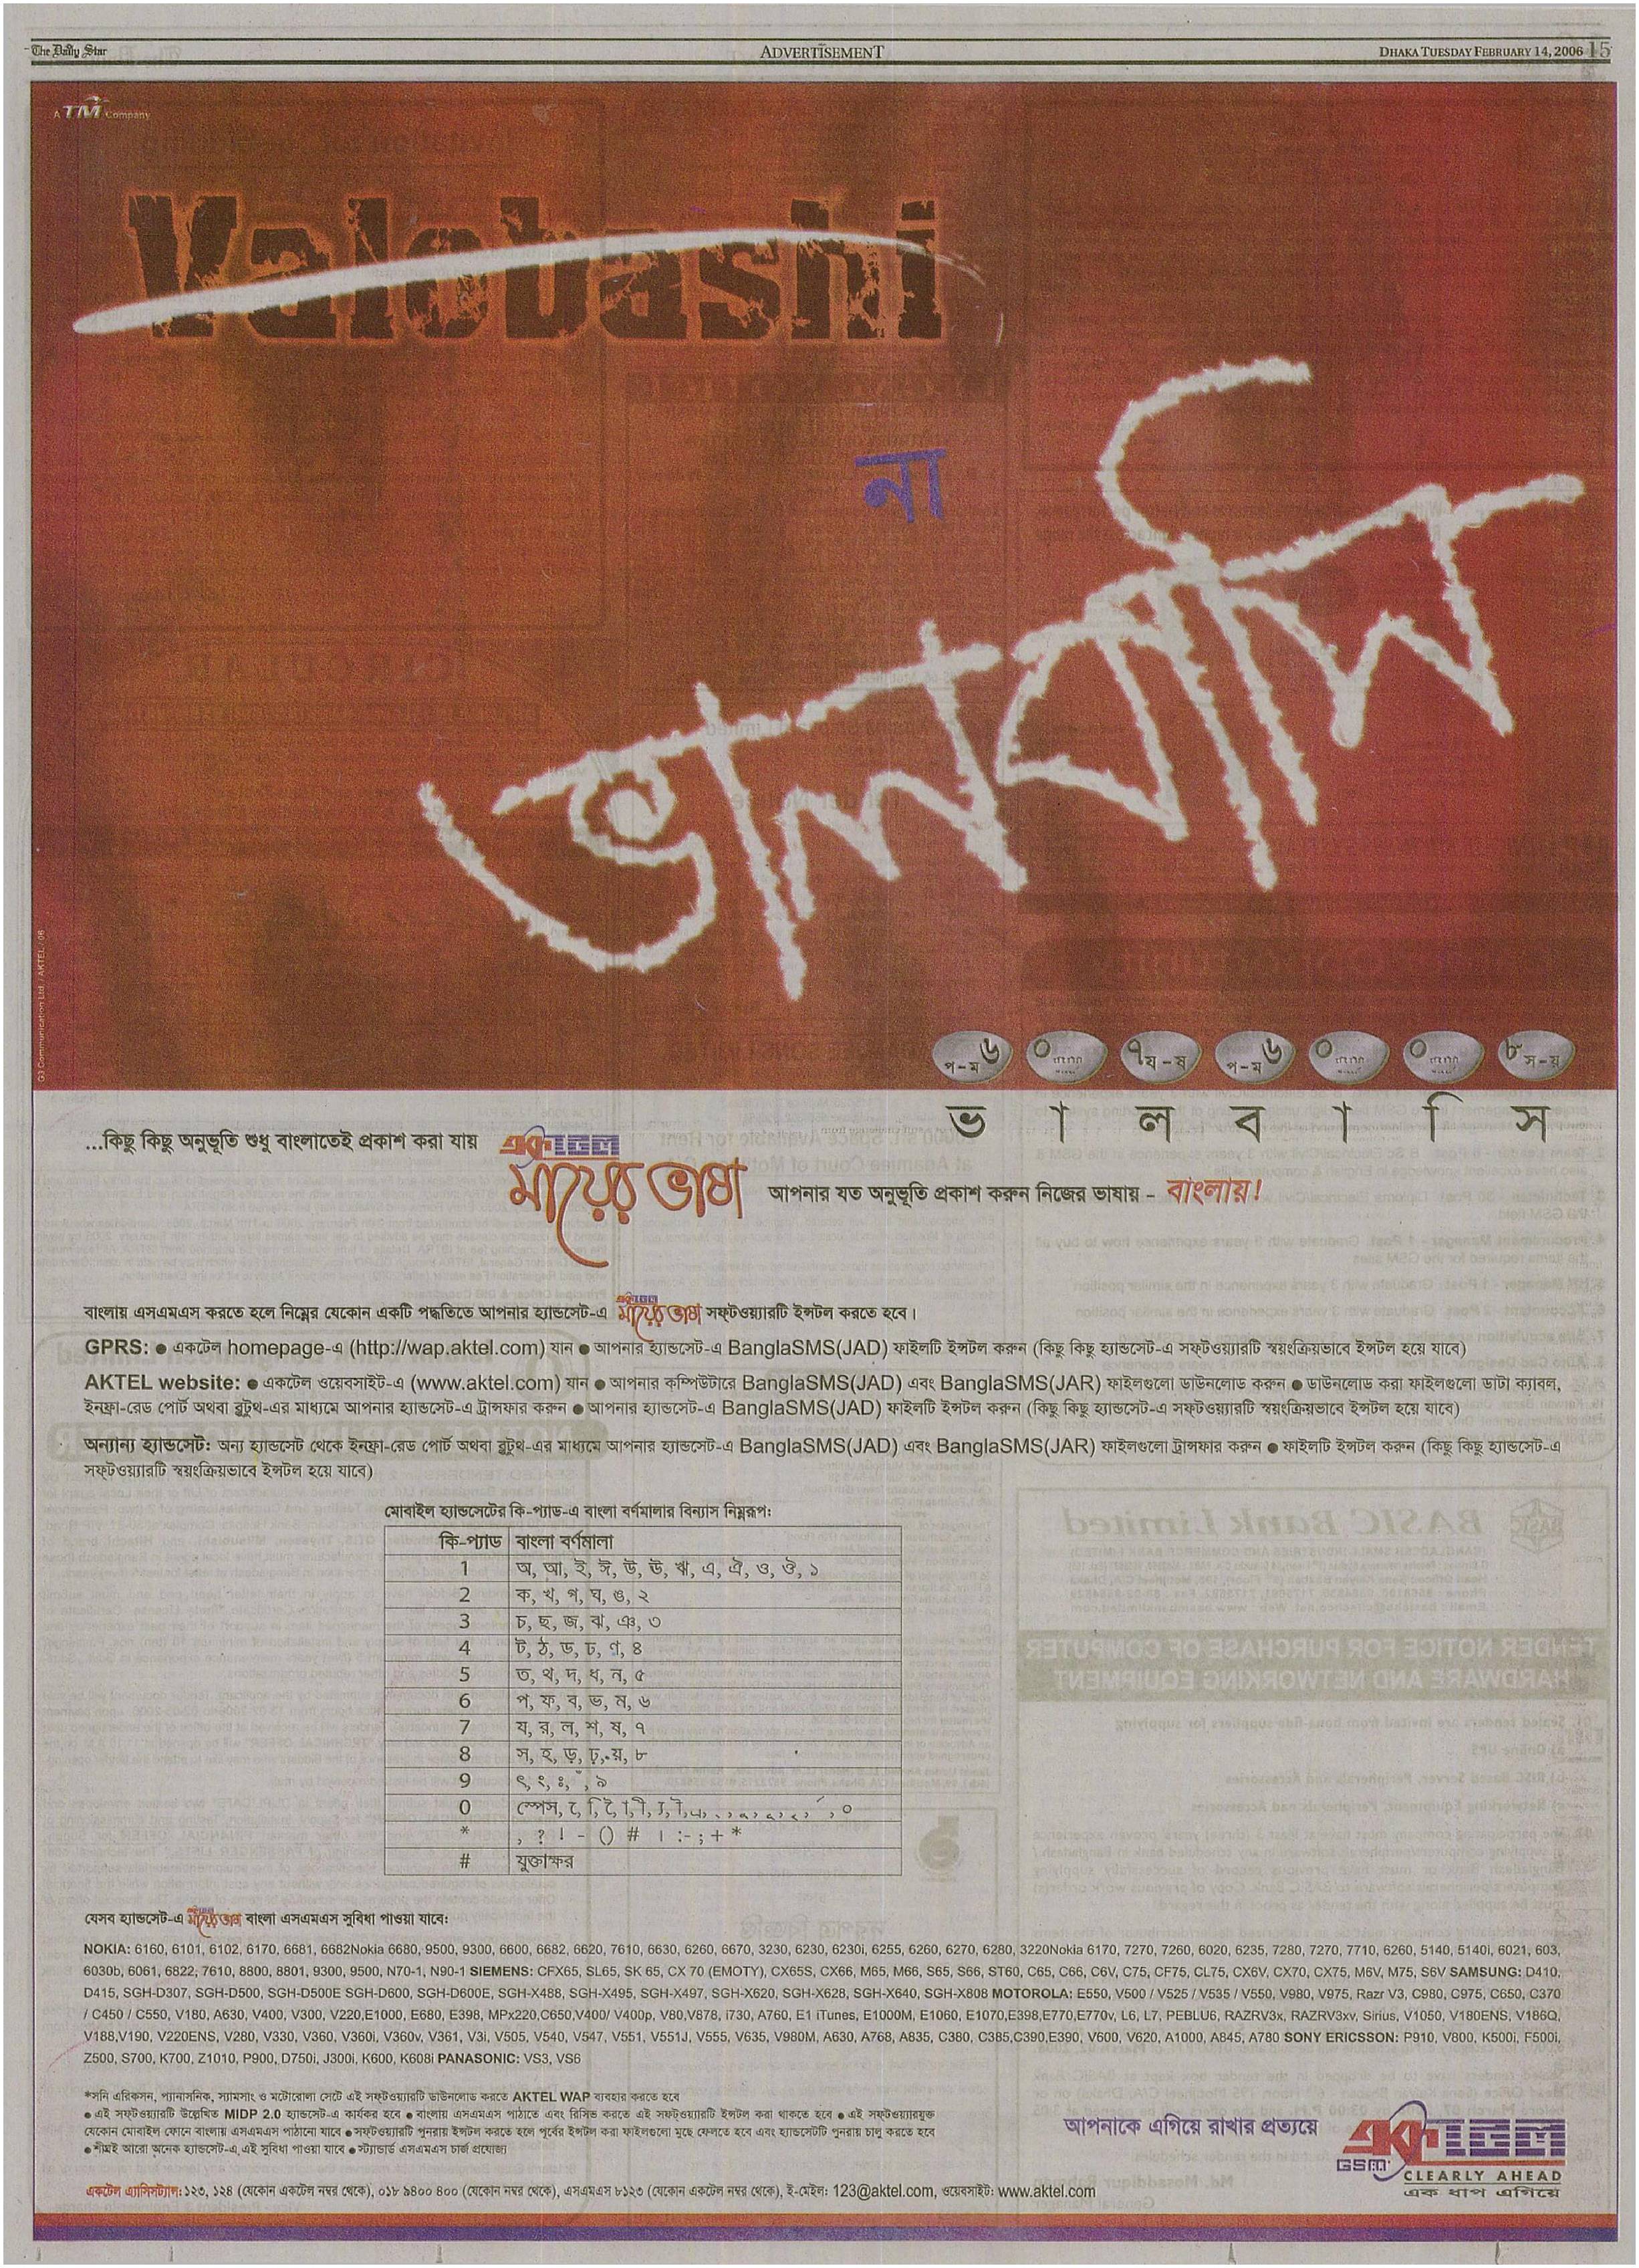 The Daily Star
ADVERTISEMENT
DHAKA TUESDAY FEBRUARY 14, 2006 15
A TM Company
Valobashi
না
ভালবাসি
G3 Communication Ltd. / AKTEL / 06
প-ম ৬ ০ ৭ য-ষ প-ম ৬ ০ ০ ৮ স-য়
ভ া ল ব া ি স
...কিছু কিছু অনুভূতি শুধু বাংলাতেই প্রকাশ করা যায়
একটেল
মায়ের ভাষা আপনার যত অনুভূতি প্রকাশ করুন নিজের ভাষায় - বাংলায়!
বাংলায় এসএমএস করতে হলে নিম্নের যেকোন একটি পদ্ধতিতে আপনার হ্যান্ডসেট-এ একটেল মায়ের ভাষা সফ্টওয়্যারটি ইন্সটল করতে হবে।
GPRS: ● একটেল homepage-এ (http://wap.aktel.com) যান ● আপনার হ্যান্ডসেট-এ BanglaSMS(JAD) ফাইলটি ইন্সটল করুন (কিছু কিছু হ্যান্ডসেট-এ সফ্টওয়্যারটি স্বয়ংক্রিয়ভাবে ইন্সটল হয়ে যাবে)
AKTEL website: ● একটেল ওয়েবসাইট-এ (www.aktel.com) যান ● আপনার কম্পিউটারে BanglaSMS(JAD) এবং BanglaSMS(JAR) ফাইলগুলো ডাউনলোড করুন ● ডাউনলোড করা ফাইলগুলো ডাটা ক্যাবল,
ইনফ্রা-রেড পোর্ট অথবা ব্লুটুথ-এর মাধ্যমে আপনার হ্যান্ডসেট-এ ট্রান্সফার করুন ● আপনার হ্যান্ডসেট-এ BanglaSMS(JAD) ফাইলটি ইন্সটল করুন (কিছু কিছু হ্যান্ডসেট-এ সফ্টওয়্যারটি স্বয়ংক্রিয়ভাবে ইন্সটল হয়ে যাবে)
অন্যান্য হ্যান্ডসেট: অন্য হ্যান্ডসেট থেকে ইনফ্রা-রেড পোর্ট অথবা ব্লুটুথ-এর মাধ্যমে আপনার হ্যান্ডসেট-এ BanglaSMS(JAD) এবং BanglaSMS(JAR) ফাইলগুলো ট্রান্সফার করুন ● ফাইলটি ইন্সটল করুন (কিছু কিছু হ্যান্ডসেট-এ
সফ্টওয়্যারটি স্বয়ংক্রিয়ভাবে ইন্সটল হয়ে যাবে)
মোবাইল হ্যান্ডসেটের কি-প্যাড-এ বাংলা বর্ণমালার বিন্যাস নিম্নরূপ:
কি-প্যাড বাংলা বর্ণমালা
1 অ, আ, ই, ঈ, উ, ঊ, ঋ, এ, ঐ, ও, ঔ, ১
2 ক, খ, গ, ঘ, ঙ, ২
3 চ, ছ, জ, ঝ, ঞ, ৩
4 ট, ঠ, ড, ঢ, ণ, ৪
5 ত, থ, দ, ধ, ন, ৫
6 প, ফ, ব, ভ, ম, ৬
7 য, র, ল, শ, ষ, ৭
8 স, হ, ড়, ঢ়, য়, ৮
9 ৎ, ং, ঃ, ঁ, ৯
0 স্পেস, ০
* , ? ! - () # । :- ; + *
# যুক্তাক্ষর
যেসব হ্যান্ডসেট-এ একটেল মায়ের ভাষা বাংলা এসএমএস সুবিধা পাওয়া যাবে:
NOKIA: 6160, 6101, 6102, 6170, 6681, 6682Nokia 6680, 9500, 9300, 6600, 6682, 6620, 7610, 6630, 6260, 6670, 3230, 6230, 6230i, 6255, 6260, 6270, 6280, 3220Nokia 6170, 7270, 7260, 6020, 6235, 7280, 7270, 7710, 6260, 5140, 5140i, 6021, 603,
6030b, 6061, 6822, 7610, 8800, 8801, 9300, 9500, N70-1, N90-1 SIEMENS: CFX65, SL65, SK 65, CX 70 (EMOTY), CX65S, CX66, M65, M66, S65, S66, ST60, C65, C66, C6V, C75, CF75, CL75, CX6V, CX70, CX75, M6V, M75, S6V SAMSUNG: D410,
D415, SGH-D307, SGH-D500, SGH-D500E SGH-D600, SGH-D600E, SGH-X488, SGH-X495, SGH-X497, SGH-X620, SGH-X628, SGH-X640, SGH-X808 MOTOROLA: E550, V500 / V525 / V535 / V550, V980, V975, Razr V3, C980, C975, C650, C370
/ C450 / C550, V180, A630, V400, V300, V220,E1000, E680, E398, MPx220,C650,V400/ V400p, V80,V878, i730, A760, E1 iTunes, E1000M, E1060, E1070,E398,E770,E770v, L6, L7, PEBLU6, RAZRV3x, RAZRV3xv, Sirius, V1050, V180ENS, V186Q,
V188,V190, V220ENS, V280, V330, V360, V360i, V360v, V361, V3i, V505, V540, V547, V551, V551J, V555, V635, V980M, A630, A768, A835, C380, C385,C390,E390, V600, V620, A1000, A845, A780 SONY ERICSSON: P910, V800, K500i, F500i,
Z500, S700, K700, Z1010, P900, D750i, J300i, K600, K608i PANASONIC: VS3, VS6
*সনি এরিকসন, প্যানাসনিক, স্যামসাং ও মটোরোলা সেটে এই সফ্টওয়্যারটি ডাউনলোড করতে AKTEL WAP ব্যবহার করতে হবে
● এই সফ্টওয়্যারটি উল্লেখিত MIDP 2.0 হ্যান্ডসেট-এ কার্যকর হবে ● বাংলায় এসএমএস পাঠাতে এবং রিসিভ করতে এই সফ্টওয়্যারটি ইন্সটল করা থাকতে হবে ● এই সফ্টওয়্যারযুক্ত
যেকোন মোবাইল ফোনে বাংলায় এসএমএস পাঠানো যাবে ● সফ্টওয়্যারটি পুনরায় ইন্সটল করতে হলে পূর্বের ইন্সটল করা ফাইলগুলো মুছে ফেলতে হবে এবং হ্যান্ডসেটটি পুনরায় চালু করতে হবে
● শীঘ্রই আরো অনেক হ্যান্ডসেট-এ এই সুবিধা পাওয়া যাবে ● স্ট্যান্ডার্ড এসএমএস চার্জ প্রযোজ্য
আপনাকে এগিয়ে রাখার প্রত্যয়ে
একটেল
GSM
CLEARLY AHEAD
এক ধাপ এগিয়ে
একটেল এ্যাসিসট্যান্স: ১২৩, ১২৪ (যেকোন একটেল নম্বর থেকে), ০১৮ ৯৪০০ ৪০০ (যেকোন নম্বর থেকে), এসএমএস ৮১২৩ (যেকোন একটেল নম্বর থেকে), ই-মেইল: 123@aktel.com, ওয়েবসাইট: www.aktel.com